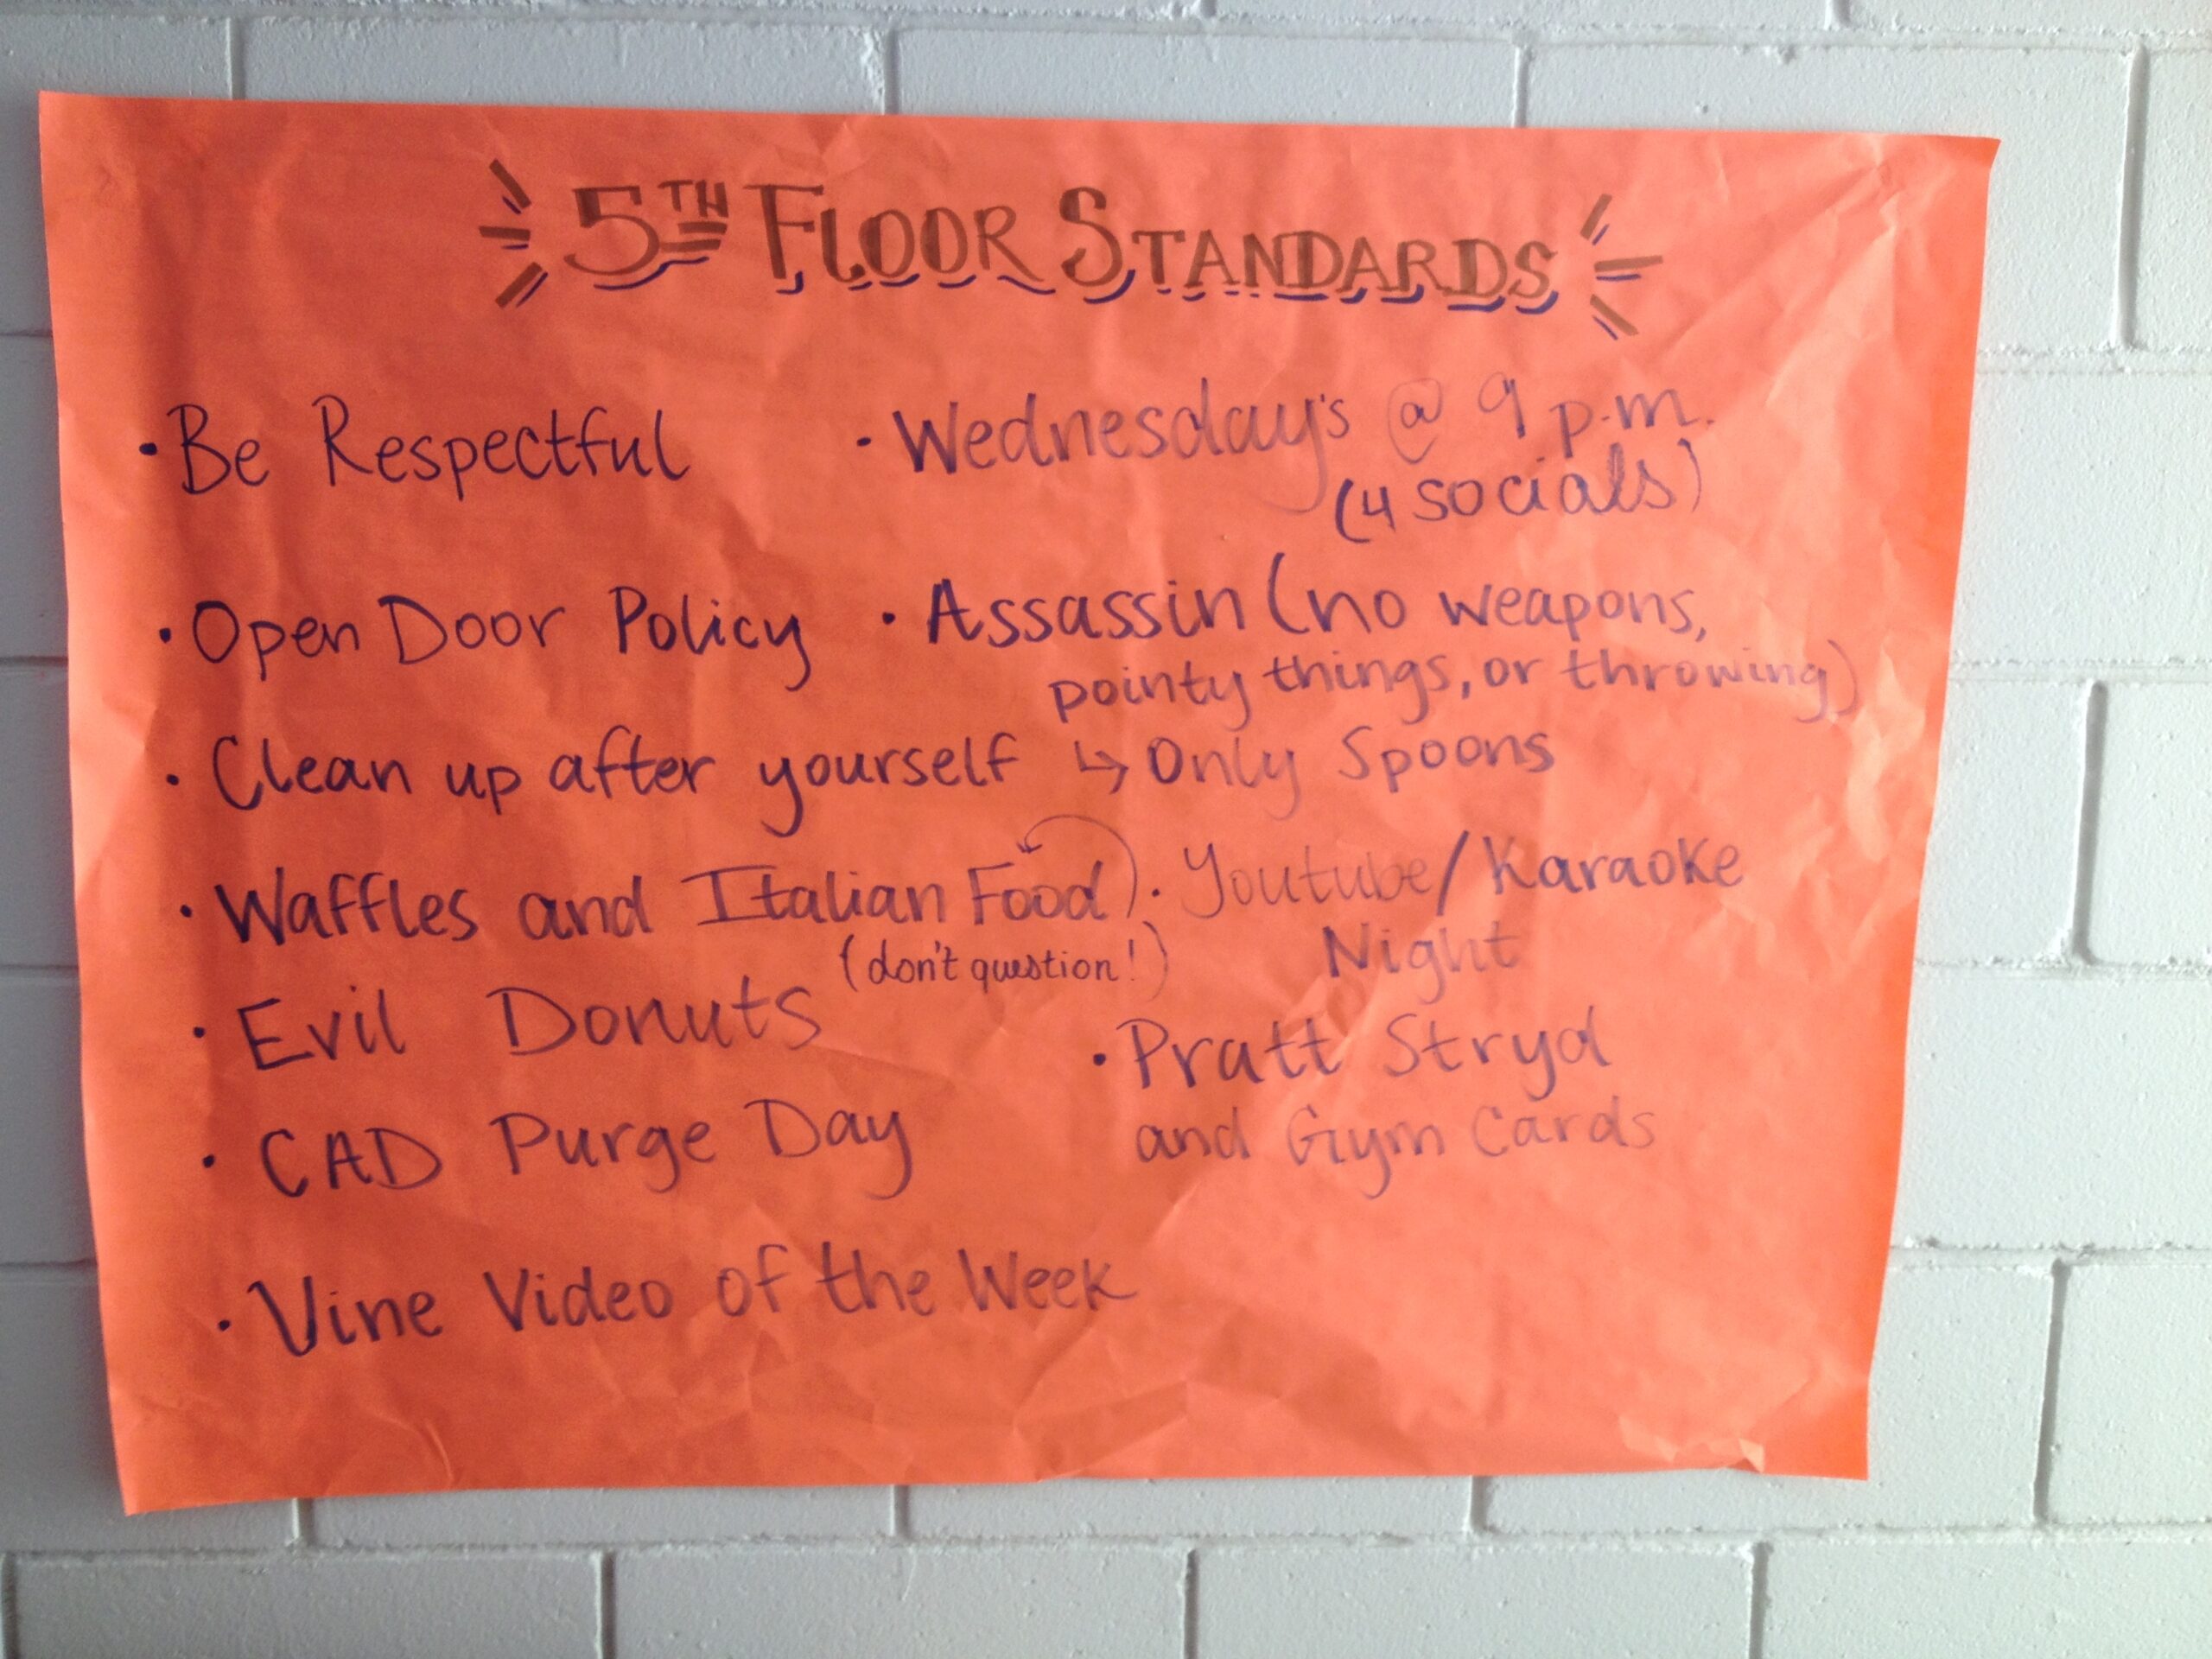 5TH FLOOR STANDARDS
• Be Respectful
• Open Door Policy
• Clean up after yourself
• Waffles and Italian Food
(don't question!)
• Evil Donuts
• CAD Purge Day
• Vine Video of the Week
• Wednesday's @ 9 p.m.
(4 socials)
• Assassin (no weapons,
pointy things, or throwing)
↳ Only Spoons
• Youtube/Karaoke
Night
• Pratt Stryd
and Gym Cards